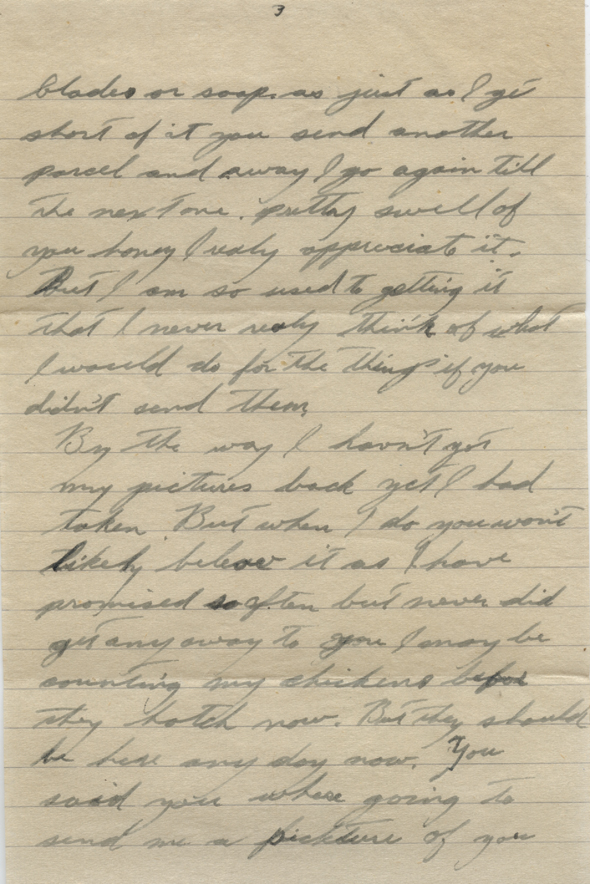 3
blades or soap. as just as I get
short of it you send another
parcel and away I go again till
the next one. pretty swell of
you honey I realy appreciate it.
But I am so used to getting it
that I never realy think of what
I would do for the things if you
didn't send them
By the way I havn't got
my pictures back yet I had
taken But when I do you won't
likely beleav it as I have
promised so often but never did
get any away to you I may be
counting my chickens before
they hatch now. But they should
be here any day now. You
said you where going to
send me a pickture of you